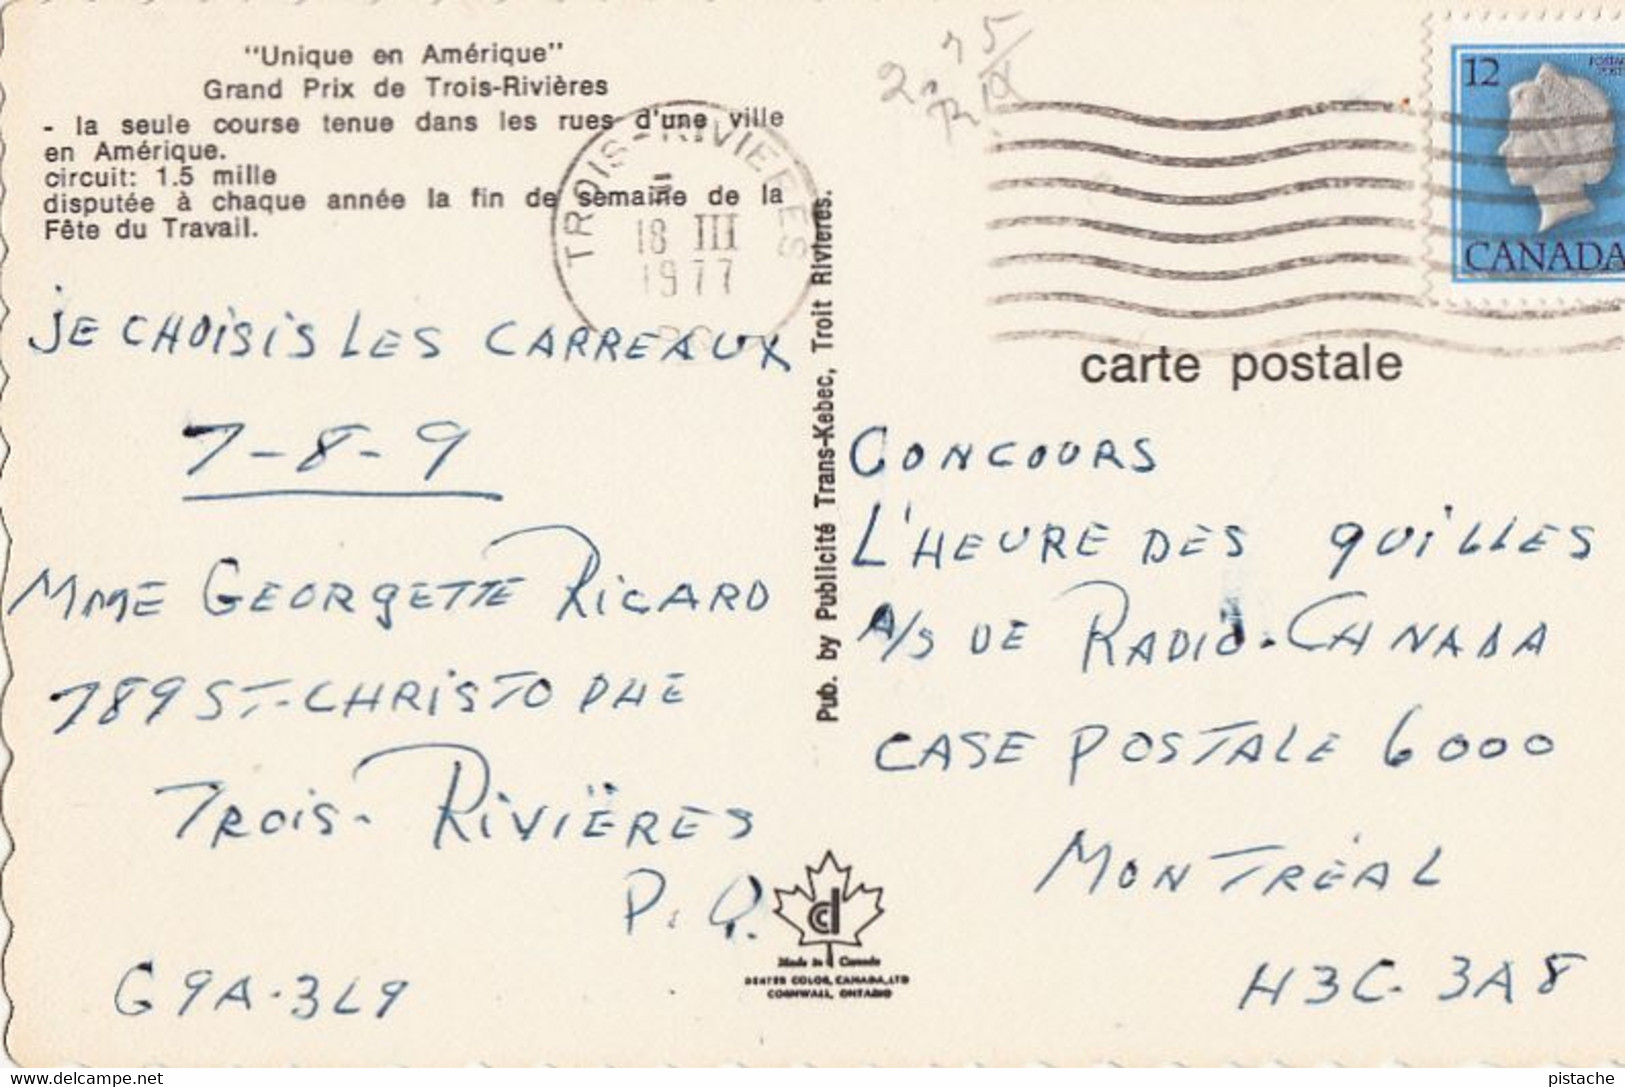 "Unique en Amérique"
Grand Prix de Trois-Rivières
- la seule course tenue dans les rues d'une ville
en Amérique.
circuit: 1.5 mille
disputée à chaque année la fin de semaine de la
Fête du Travail.
TROIS-RIVIERES
18 III
1977
12
CANADA
JE CHOISIS LES CARREAUX
7-8-9
MME GEORGETTE RICARD
789 ST-CHRISTOPHE
TROIS-RIVIËRES
P.Q.
G9A-3L9
Pub. by Publicité Trans-Kebec, Troit Rivieres.
carte postale
CONCOURS
L'HEURE DES QUILLES
A/S DE RADIO-CANADA
CASE POSTALE 6000
MONTRÉAL
H3C-3A8
Made in Canada
DEXTER COLOR, CANADA, LTD
CORNWALL, ONTARIO
delcampe.net
pistache